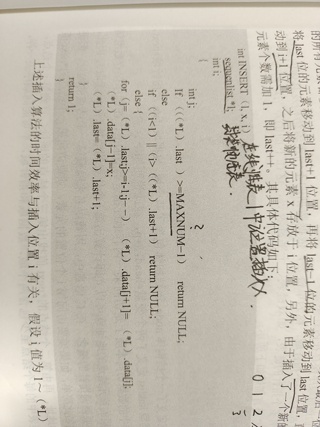 将 last 位的元素移动到 last+1 位置，再将 last-1 位的元素移动到 last 位置，
动到 i+1 位置，之后将新的元素 x 存放于 i 位置，另外，由于插入了一个新的
元素个数需加 1，即 last++。其具体代码如下：
int INSERT (l, x, i)
sequenlist *l;
int i;
在线性表 l 中 i 位置插入 x.
{
int j;
If (((*L) .last ) >=MAXNUM−1) return NULL;
else
if ((i<1) || (i> ((*L) .last+1) return NULL;
else {
for (j= (*L) .last;j>=i-1;j--) (*L) .data[j+1]= (*L) .data[j];
(*L) .data[j−1]=x;
(*L) .last= (*L) .last+1;
}
return 1;
}
上述插入算法的时间效率与插入位置 i 有关，假设 i 值为 1~ (*L)
0 1 2
3